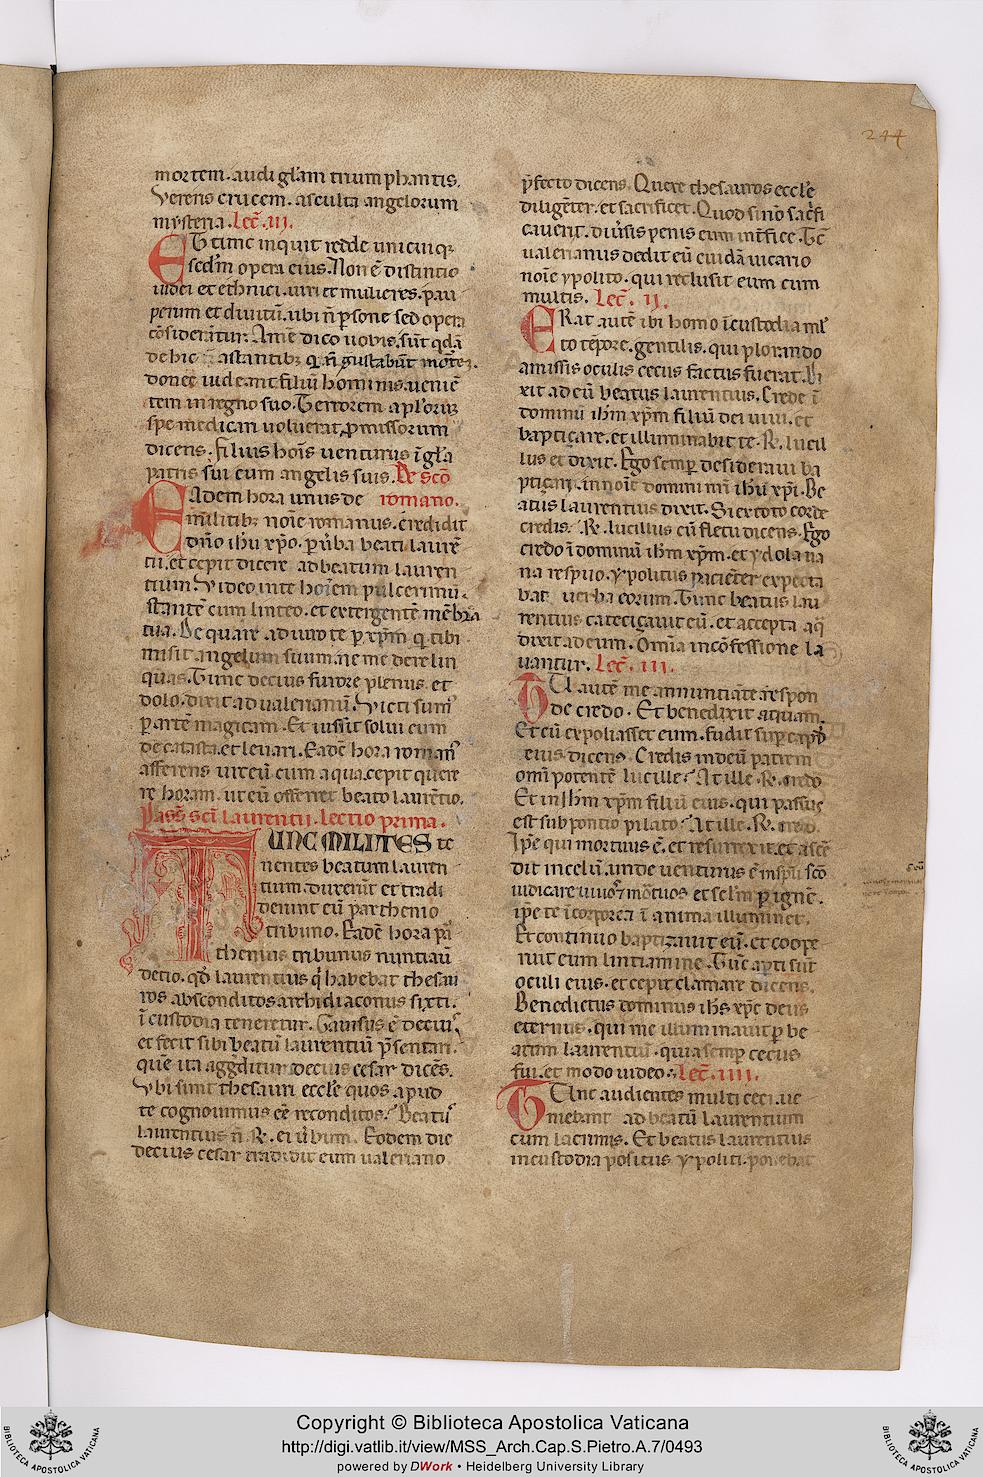 244
mortem. audi gl̄am triumphantis.
Verens crucem. asculta angelorum
mysteria. Lec̄. iij.
ET tunc inquit redde unicuiq;
sed'm opera eius. Non ē distinctio
iudei et ethnici. uiri et mulieres. pau
perum et diuitū. ubi n̄ p̄sone sed opera
cōsiderāntur. Amē dico uobis. sūt qdā
de hic astantib; q n̄ gustabūt mortē.
donec uideant filiū hominis ueniē
tem in regno suo. Terrorem ap̄lorum
spe medicari uoluerat p̄missorum
dicens. filius hoīs uenturus ī gl̄a
patris sui cum angelis suis. De sc̄o
EAdem hora unus de romano.
militib; noīe romanus. credidit
dn̄o ihū xp̄o. p uerba beati laurē
tii. et cepit dicere ad beatum lauren
tium. Video in te hoīem pulcerrimū.
stantē cum linteo. et extergentē mēbra
tua. De quare adiuro te p xp̄m q tibi
misit angelum suum. ne me derelin
quas. Tunc decius furore plenus et
dolo. dixit ad ualerianū. Victi sum'
p artē magicam. Et iussit solui eum
de catasta. et leuari. Eadē hora roman'
afferens urceū cum aqua. cepit quere
re horam. ut eū offerret beato laurētio.
Pass' sc̄i laurentii. lectio prima.
TUNC MILITES te
nentes beatum lauren
tium. duxerūt et tradi
derunt eū parthenio
tribuno. Eadē hora pa
thenius tribunus nuntiau
decio. qd' laurentius q habebat thesau
ros absconditos archidiaconus sixti.
ī custodia teneretur. Gauisus ē decius
et fecit sibi beatū laurentiū p̄sentari.
quē ita aggditur decius cesar dicēs.
Vbi sunt thesauri eccl'e quos apud
te cognouimus eē reconditos? Beat'
laurentius n̄ R. ei ūbum. Eodem die
decius cesar tradidit eum ualeriano
p̄fecto dicens. Quere thesauros eccl'e
diligēter. et sacrificet. Quod si nō sac'fi
cauerit. diūsis penis eum intfice. Tc̄
ualerianus dedit eū cuidā uicario
noīe ypolito. qui reclusit eum cum
multis. Lec̄. ii.
ERat autē ibi homo ī custodia ml'
to tēpore. gentilis. qui plorando
amissis oculis cecus factus fuerat. Di
xit ad eū beatus laurentius. Crede ī
dominū ihm xp̄m filiū dei uiui. et
baptiçare. et illuminabit te. R. lucil
lus et dixit. Ego semp desideraui ba
ptiçari in noīe domini nri ihū xp̄i. Be
atus laurentius dixit. Si ex toto corde
credis? R. lucillus cū fletu dicens. Ego
credo ī dominū ihm xp̄m. et ydola ua
na respuo. Ypolitus paciēter expecta
bat uerba eorum. Tunc beatus lau
rentius cateciçauit eū. et accepta aq̄
dixit ad eum. Omīa in cōfessione la
uantur. Lec̄. iii.
TU autē me annunciāte respon
de credo. Et benedixit aquam.
Et cū expoliasset eum. fudit sup caput
eius dicens. Credis in deū patrem
omīpotentē lucille? At ille. R. credo
Et in ihm xp̄m filiū eius. qui passus
est sub pontio pilato? At ille. R. credo.
Ipe qui mortuus ē. et resurrexit. et ascē
dit in celū. unde uenturus ē in spū sc̄o
iudicare uiuos 7 mortuos et sclm p ignē.
ipe te ī corpore. 7 ī anima illuminet.
Et continuo baptizauit eū. et coope
ruit eum lintiamine. Tūc apti sūt
oculi eius. et cepit clamare dicens.
Benedictus dominus ihs xp̄c deus
eternus. qui me illuminauit p be
atum laurentiū. quia semp cecus
fui. et modo uideo. Lec̄. iiii.
TUnc audientes multi ceci. ue
niebant ad beatū laurentium
cum lacrimis. Et beatus laurentius
in custodia positus ypoliti. ponebat
Copyright © Biblioteca Apostolica Vaticana
http://digi.vatlib.it/view/MSS_Arch.Cap.S.Pietro.A.7/0493
powered by DWork • Heidelberg University Library
BIBLIOTECA APOSTOLICA VATICANA
BIBLIOTECA APOSTOLICA VATICANA